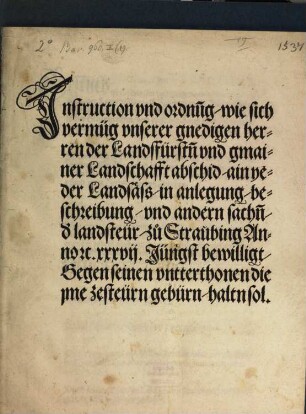 2° Bar.
1537
Instruction vnd ordnu̅g wie sich
vermüg vnserer gnedigen her-
ren der Landsfürstn̅ vnd gmai-
ner Landschafft abschid ain ye-
der Landsäss in anlegung be-
schreibung vnd andern sachn̅
d landsteür zu Straubing An-
no ꝛc. xxxvij. Jüngst bewilligt
Gegen seinen vntterthonen die
jme zesteürn gebürn haltn sol.